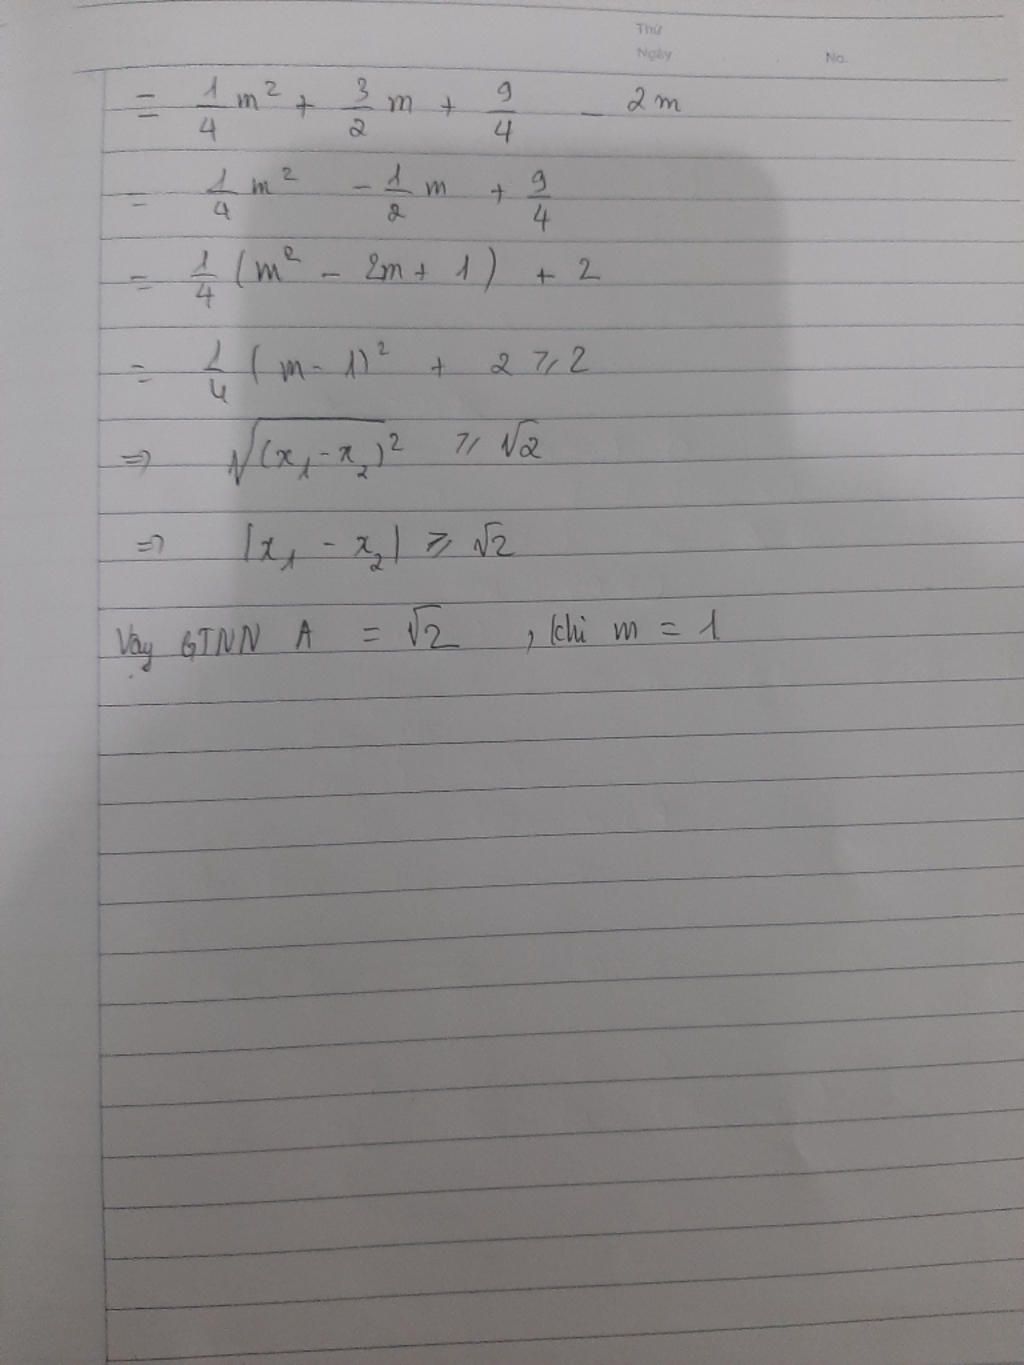 Thứ
Ngày No.
= 1/4 m² + 3/2 m + 9/4 - 2m
= 1/4 m² - 1/2 m + 9/4
= 1/4 (m² - 2m + 1) + 2
= 1/4 (m - 1)² + 2 ⩾ 2
⇒ √(x₁ - x₂)² ⩾ √2
⇒ |x₁ - x₂| ⩾ √2
Vậy GTNN A = √2 , khi m = 1